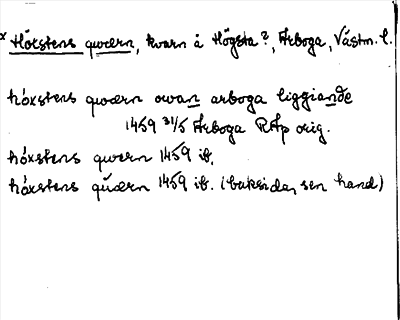 x Höxstens qwærn, kvarn å Högsta?, Arboga, Västm. l.
höxstens qwærn owan arboga liggiande
1459 31/5 Arboga RAp orig.
höxstens qwern 1459 ib.
höxstens qúærn 1459 ib. (baksidan, sen hand)